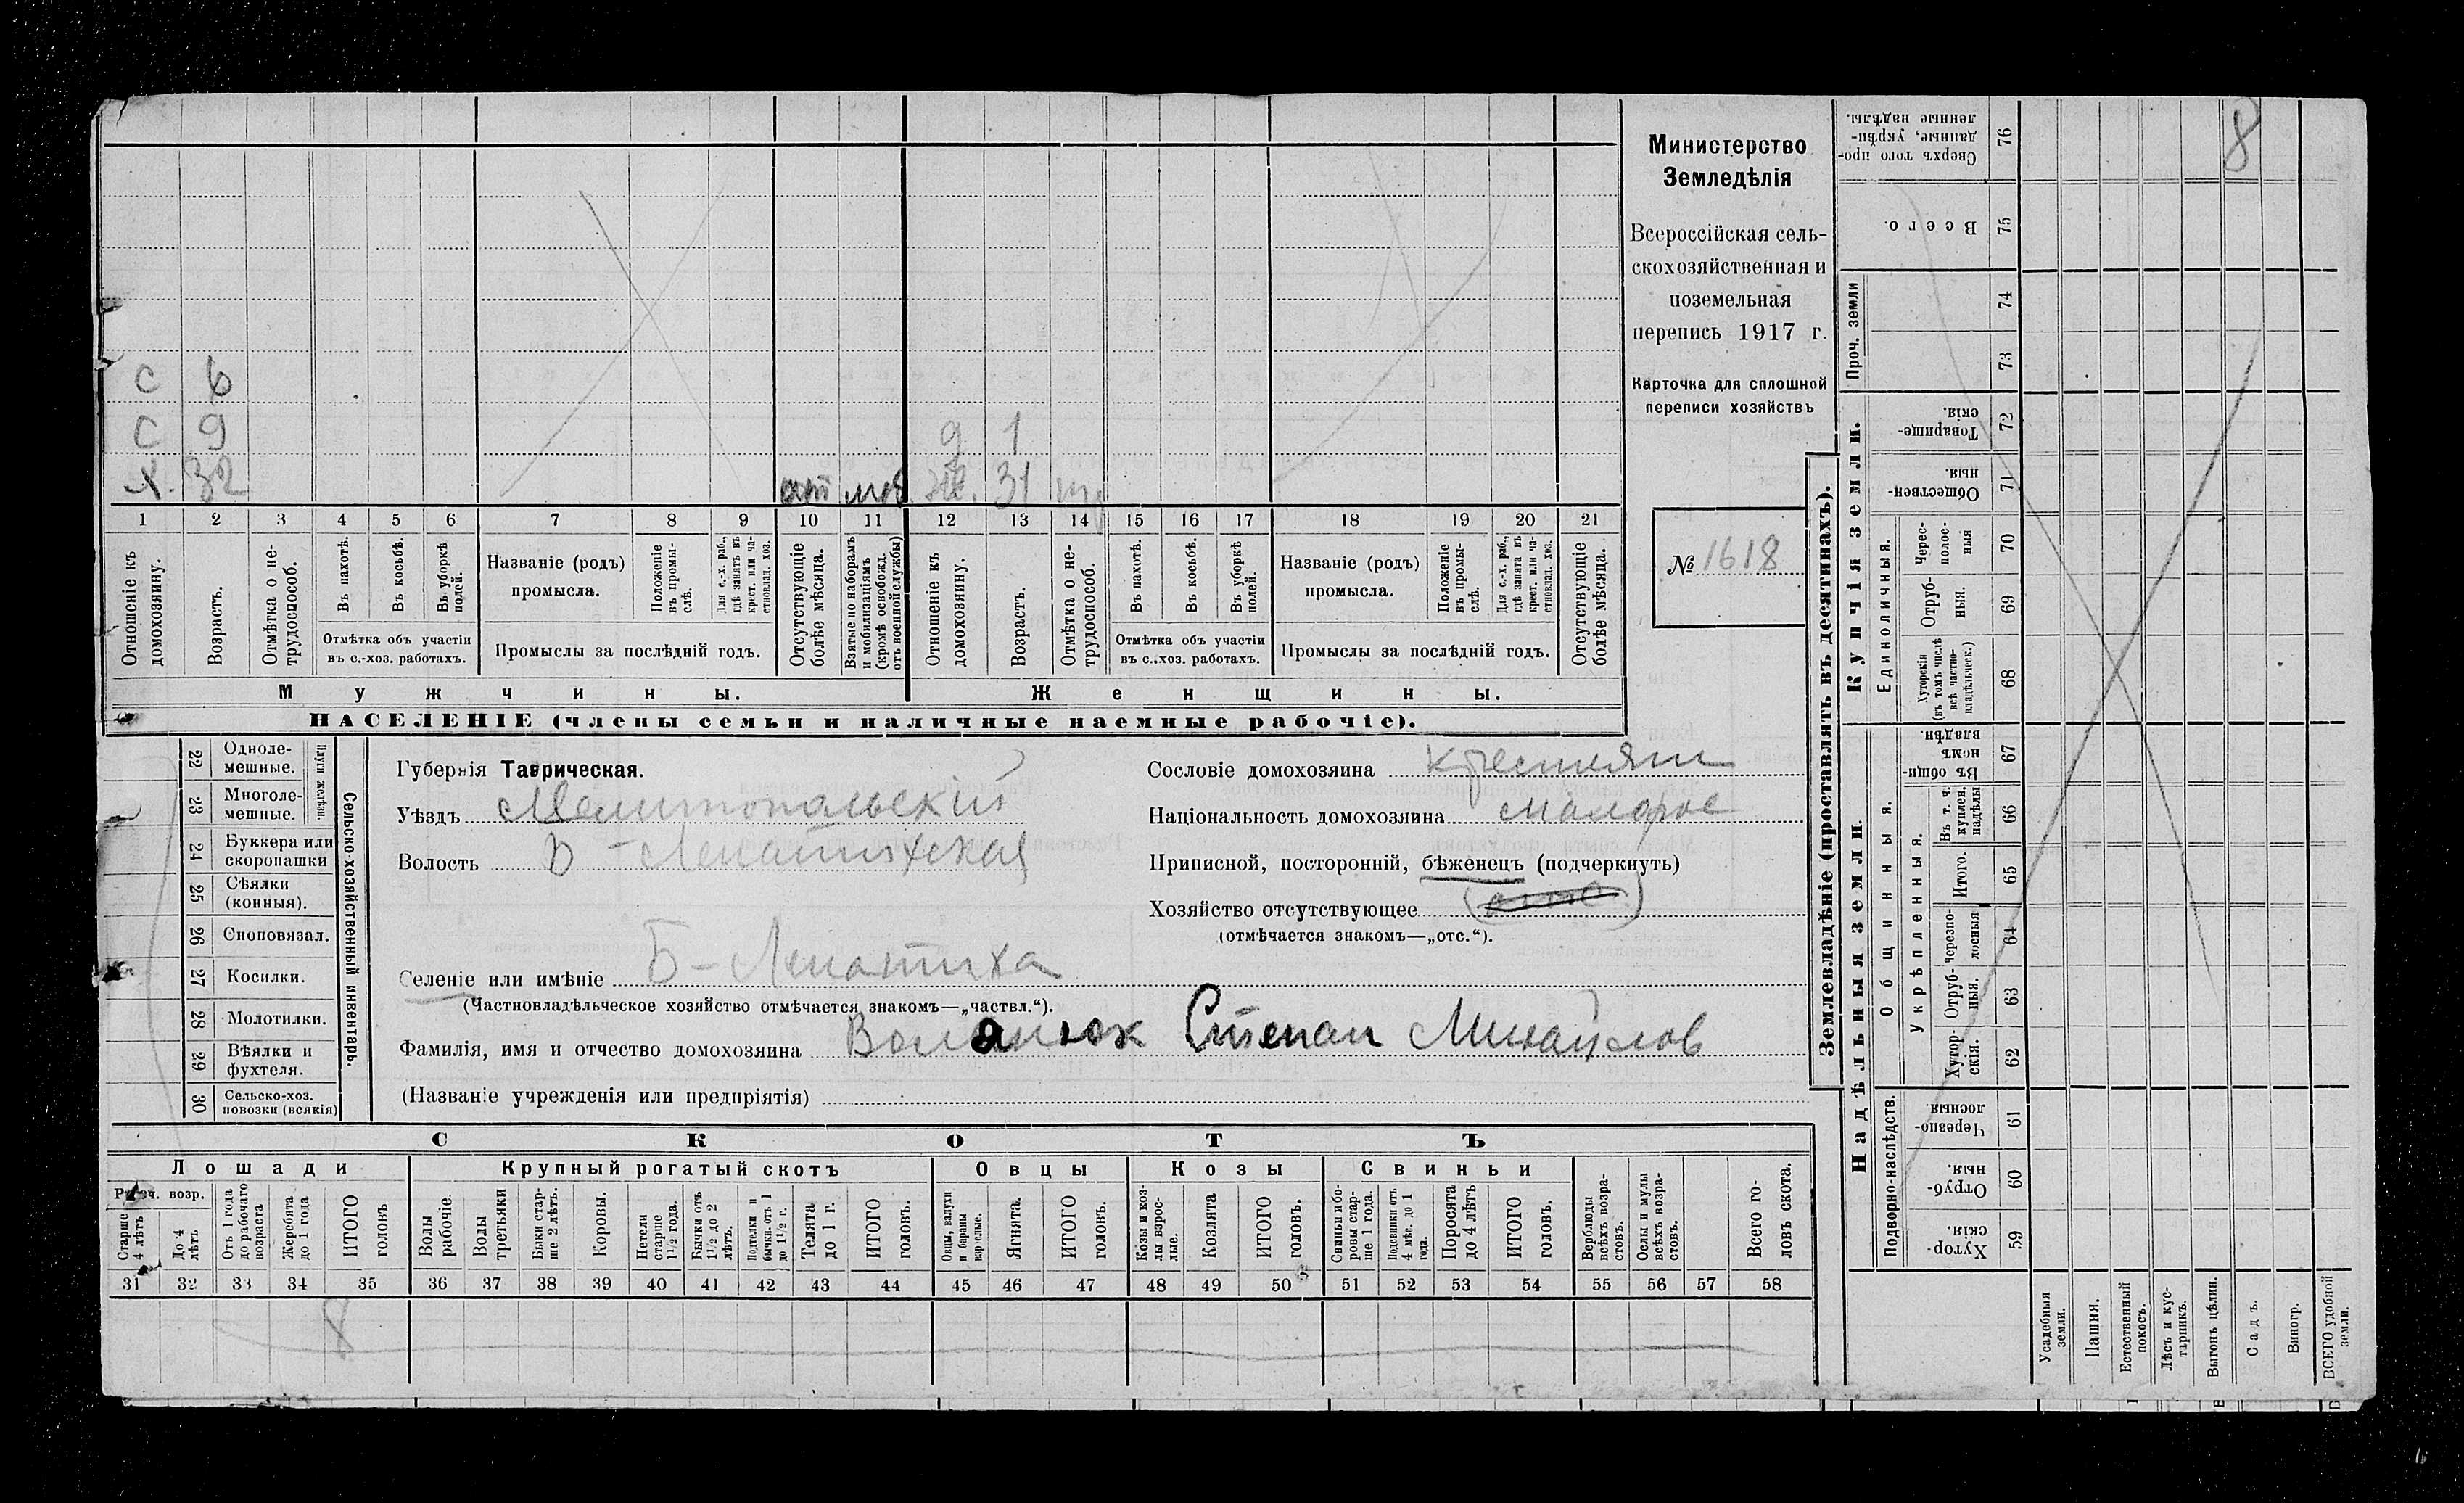 С 6
С 9
д 1
Х. 32 отт моб. ж. 31
1 2 3 4 5 6 7 8 9 10 11 12 13 14 15 16 17 18 19 20 21
Отношеніе къ домохозяину.
Возрастъ.
Отмѣтка о не-трудоспособ.
Въ пахотѣ.
Въ косьбѣ.
Въ уборкѣ полей.
Отмѣтка объ участіи
въ с.-хоз. работахъ.
Названіе (родъ)
промысла.
Положеніе въ промы-слѣ.
Для с.-х. раб., гдѣ занятъ въ крест. или ча-стновлад. хоз.
Промыслы за послѣдній годъ.
Отсутствующіе болѣе мѣсяца.
Взятые по наборамъ и мобилизаціямъ (кромѣ освобожд. отъ военной службы)
Отношеніе къ домохозяину.
Возрастъ.
Отмѣтка о не-трудоспособ.
Въ пахотѣ.
Въ косьбѣ.
Въ уборкѣ полей.
Отмѣтка объ участіи
въ с.-хоз. работахъ.
Названіе (родъ)
промысла.
Положеніе въ промы-слѣ.
Для с.-х. раб., гдѣ занята въ крест. или ча-стновлад. хоз.
Промыслы за послѣдній годъ.
Отсутствующіе болѣе мѣсяца.
Мужчины.
Женщины.
НАСЕЛЕНІЕ (члены семьи и наличные наемные рабочіе).
Министерство
Земледѣлія
Всероссійская сель-
скохозяйственная и
поземельная
перепись 1917 г.
Карточка для сплошной
переписи хозяйствъ
№ 1618
22 Одноле-мешные.
23 Многоле-мешные.
Плуги желѣзн.
24 Буккера или скоропашки
25 Сѣялки (конныя).
26 Сноповязал.
27 Косилки.
28 Молотилки.
29 Вѣялки и фухтеля.
30 Сельско-хоз. повозки (всякія)
Сельско-хозяйственный инвентарь.
Губернія Таврическая.
Уѣздъ Мелитопольскій
Волость Б-Лепатихская
Сословіе домохозяина крестьян
Національность домохозяина малорос
Приписной, посторонній, бѣженецъ (подчеркнуть)
Хозяйство отсутствующее
(отмѣчается знакомъ—„отс.“).
Селеніе или имѣніе Б-Лепатиха
(Частновладѣльческое хозяйство отмѣчается знакомъ—„частвл.“).
Фамилія, имя и отчество домохозяина Волянюк Степан Михайлов
(Названіе учрежденія или предпріятія)
СКОТЪ
Лошади
Рабоч. возр.
Старше 4 лѣтъ
До 4 лѣтъ
Отъ 1 года до рабочаго возраста
Жеребята до 1 года
ИТОГО головъ
Крупный рогатый скотъ
Волы рабочіе
Волы третьяки
Быки стар-ше 2 лѣтъ.
Коровы.
Нетели старше 1½ года.
Бычки отъ 1½ до 2 лѣтъ.
Подтелки и бычки отъ 1 до 1½ г.
Телята до 1 г.
ИТОГО головъ.
Овцы
Овцы, валухи и бараны взрослые.
Ягнята.
ИТОГО головъ.
Козы
Козы и коз-лы взрос-лые.
Козлята
ИТОГО головъ.
Свиньи
Свиньи и бо-ровы стар-ше 1 года.
Подсвинки отъ 4 мѣс. до 1 года.
Поросята до 4 лѣтъ
ИТОГО головъ.
Верблюды всѣхъ возра-стовъ.
Ослы и мулы всѣхъ возра-стовъ.
Всего го-ловъ скота.
31 32 33 34 35 36 37 38 39 40 41 42 43 44 45 46 47 48 49 50 51 52 53 54 55 56 57 58
8
Землевладѣніе (проставлять въ десятинахъ).
Купчія земли.
Надѣльныя земли.
Сверхъ того про-данные, укрѣп-ленные надѣлы. 76
8
Всего. 75
Проч. земли
74
73
Товарище-скія. 72
Обществен-ныя. 71
Единоличныя.
Черес-полос-ныя 70
Отруб-ныя. 69
Хуторскія (въ томъ числѣ всѣ частно-владѣльческ.) 68
Общинныя.
Въ общи-номъ владѣн. 67
Укрѣпленныя.
Въ т. ч. куплен. надѣлы 66
Итого. 65
черезпо-лосныя 64
Отруб-ныя. 63
Хутор-скія. 62
Подворно-наслѣдств.
Черезпо-лосныя. 61
Отруб-ныя. 60
Хутор-скія. 59
Усадебныя земли.
Пашня.
Естественный покосъ.
Лѣсъ и кус-тарникъ.
Выгонъ цѣлин.
Садъ.
Виногр.
ВСЕГО удобной земли.